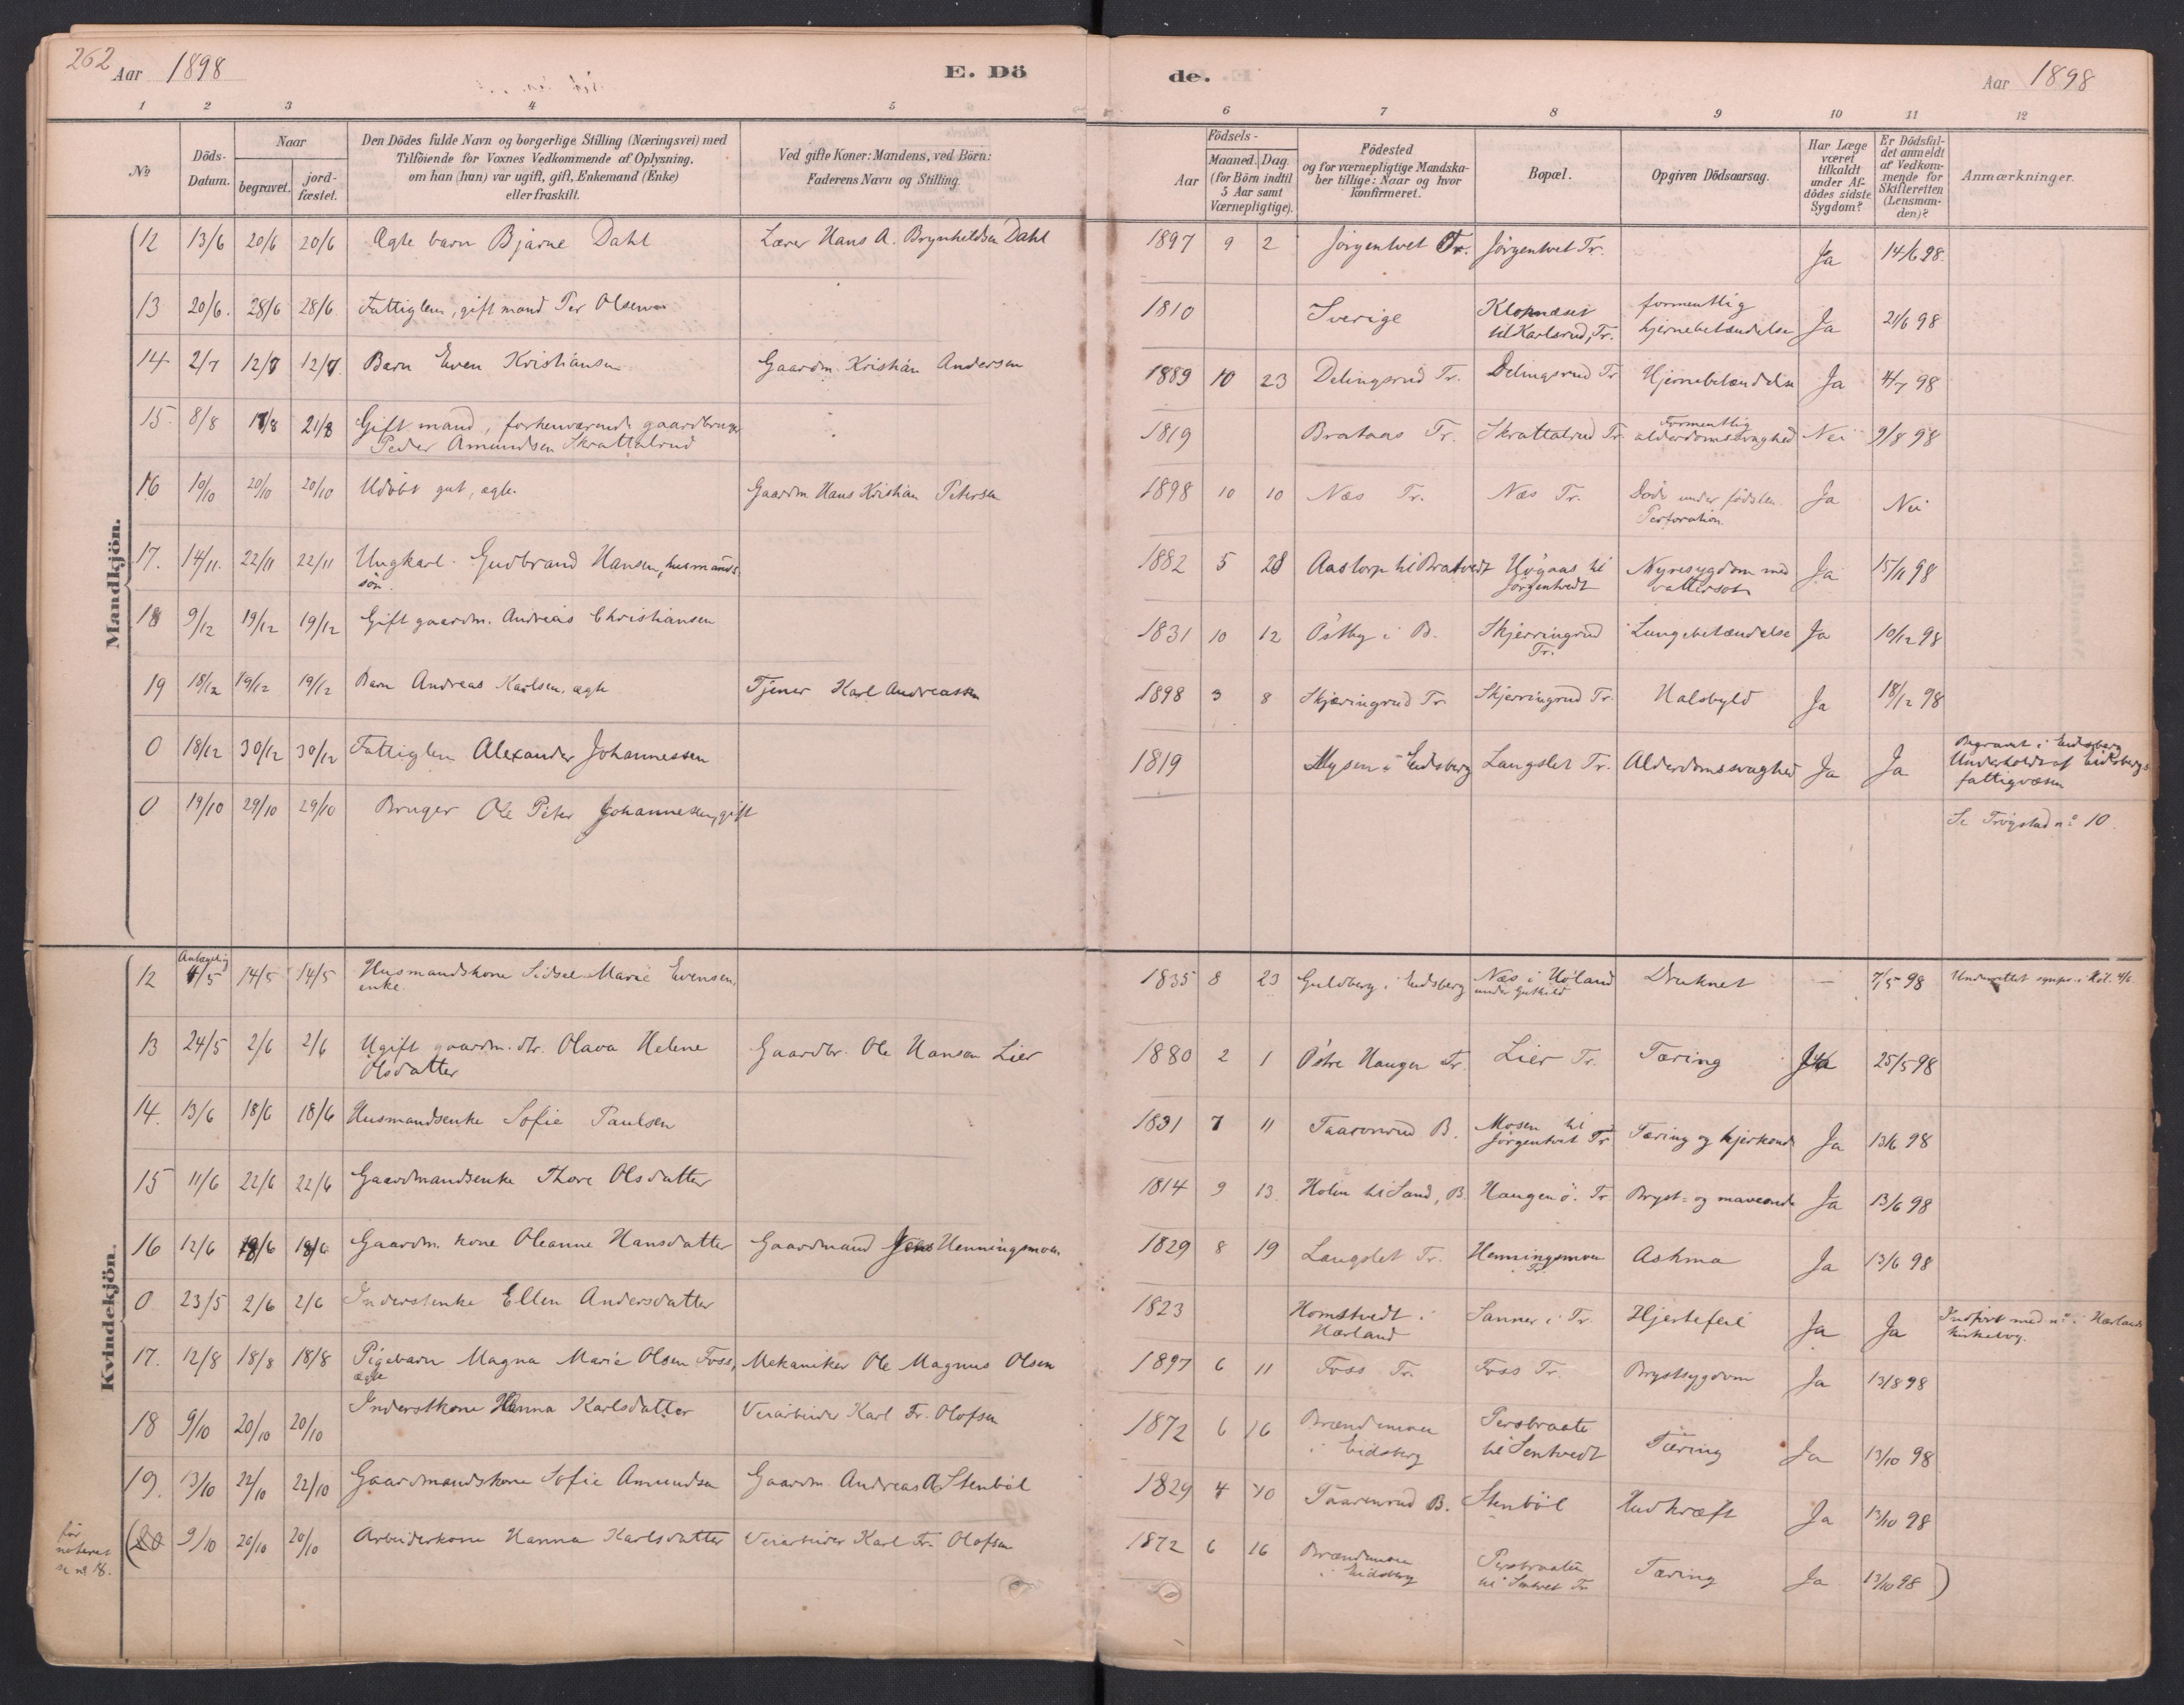 262 Aar 1898 E. Dö
1 2 3 4 5
No
Döds-Datum.
Naar
begravet.
jord-fæstet.
Den Dödes fulde Navn og borgerlige Stilling (Næringsvei) med
Tilföiende for Voxnes Vedkommende af Oplysning,
om han (hun) var ugift, gift, Enkemand (Enke)
eller fraskilt.
Ved gifte Koner: Mandens, ved Börn:
Faderens Navn og Stilling.
de. Aar 1898
6 7 8 9 10 11 12
Aar
Födsels-
Maaned. Dag.
(for Börn indtil
5 Aar samt
Værnepligtige).
Födested
og for værnepligtige Mandska-
ber tillige: Naar og hvor
konfirmeret.
Bopæl.
Opgiven Dödsaarsag.
Har Læge
været
tilkaldt
under Af-
dödes sidste
Sygdom?
Er Dödsfal-
det anmeldt
af Vedkom-
mende for
Skifteretten
(Lensman-
den)?
Anmærkninger.
Mandkjön.
12 13/6 20/6 20/6 Ægte barn Bjarne Dahl Lærer Hans A. Brynhildsen Dahl 1897 9 2 Jörgentvet Tr. Jörgentvet Tr. Ja 14/6 98.
13 20/6. 28/6 28/6 Fattiglem, gift mand Per Olsen 1810 Sverige
til Karlsrud, Tr. formentlig
hjernebetændelse Ja 21/6 98
14 2/7 12/7 12/7 Barn Even Kristiansen Gaardm. Kristian Andersen 1889 10 23 Delingsrud Tr. Delingsrud Tr Hjernebetændelse Ja 4/7 98
15 8/8 17/8 21/8 Gift mand, forhenværende gaardbruger
Peder Amundsen Skrattalrud 1819 Brataas Tr. Skrattalrud Tr. Formentlig
alderdomssvaghed Nei 9/8 98
16 10/10 20/10 20/10 Udöbt gut, ægte Gaardm Hans Kristian Petersen 1898 10 10 Næs Tr. Næs Tr. Döde under födslen.
Perforation Ja Nei
17. 14/11. 22/11 22/11 Ungkarl. Gudbrand Hansen, husmands-
sön. 1882 5 28 Aastorp til Bratvedt Högaas til
Jörgentvedt Nyresygdom med
vattersot Ja 15/11 98
18 9/12 19/12 19/12 Gift gaardm. Andreas Christiansen 1831 10 12 Östby i B. Skjerringrud
Tr. Lungebetændelse Ja 10/12 98
19 18/12 19/12 19/12 Barn Andreas Karlsen, ægte Tjener Karl Andreassen 1898 3 8 Skjæringrud Tr Skjerringrud Tr. Halsbyld Ja 18/12 98
0 18/12 30/12 30/12 Fattiglem Alexander Johannessen 1819 Mysen i Eidsberg Langslet Tr. Alderdomssvaghed Ja Ja Begravet i Eidsberg
Underholdt af Eidsbergs
fattigvæsen
0 19/10 29/10 29/10 Bruger Ole Peter Johannesen, gift Se Trögstad no 10.
Kvindekjön.
12 Antagelig
4/5 14/5 14/5 Husmandskone Sidsel Marie Evensen,
enke 1835 8 23 Guldberg i Eidsberg Næs i Höland
Druknet — 7/5 98
13 24/5 2/6 2/6 Ugift gaardm. dtr. Olava Helene
Olsdatter Gaardbr. Ole Hansen Lier 1880 2 1 Östre Haugen Tr. Lier Tr. Tæring Ja 25/5 98
14. 13/6 18/6 18/6 Husmandsenke Sofie Paulsen 1831 7 11 B. Mosen til
Jörgentvet Tr Tæring og Ja 13/6 98
15 11/6 22/6 22/6 Gaardmandsenke Thore Olsdatter 1814 9 13. Holm til Sand, B. Haugen ö. Tr. Bryst- og maveonde Ja 13/6 98
16 12/6 18/6 18/6 Gaardm. kone Oleanne Hansdatter Gaardmand Jens Henningsmoen 1829 8 19 Langslet Tr. Henningsmoen
Tr. Astma Ja 13/6 98
0 23/5 2/6 2/6 Inderstenke Ellen Andersdatter 1823 Homstvedt i
Hærland Sanner i Tr. Hjertefeil Ja Ja Indfört med no i Hærlands
kirkebog.
17. 12/8 18/8 18/8 Pigebarn Magna Marie Olsen Foss,
ægte Mekaniker Ole Magnus Olsen 1897 6 11 Foss Tr. Foss Tr. Brystsygdom Ja 13/8 98
18 9/10 20/10 20/10 Inderstkone Hanna Karlsdatter Veiarbeider Karl Fr. Olofsen 1872 6 16 Brændemoen
i Eidsberg Persbraate
til Sentvedt Tæring Ja 13/10 98
19. 13/10 22/10 22/10 Gaardmandskone Sofie Amundsen Gaardm. Andreas A. Stenböl 1829 4 10 B. Stenböl Hudkræft Ja 13/10 98
för
noteret
se no 18.
(20 9/10 20/10 20/10 Arbeiderkone Hanna Karlsdatter Veiarbeider Karl Fr. Olofsen 1872 6 16 Brændemoen
i Eidsberg Persbraaten
til Sentvet Tr Tæring Ja 13/10 98 )